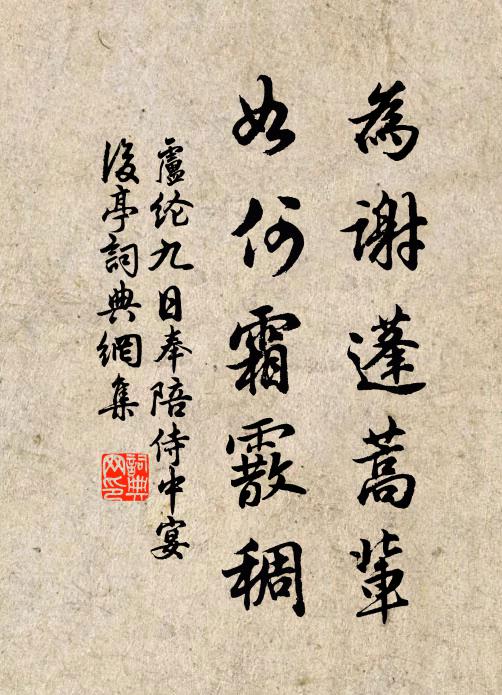 為謝蓬蒿輩
如何霜霰稠
盧纶九日奉陪侍中宴
後亭詞典網集
詞典
网印